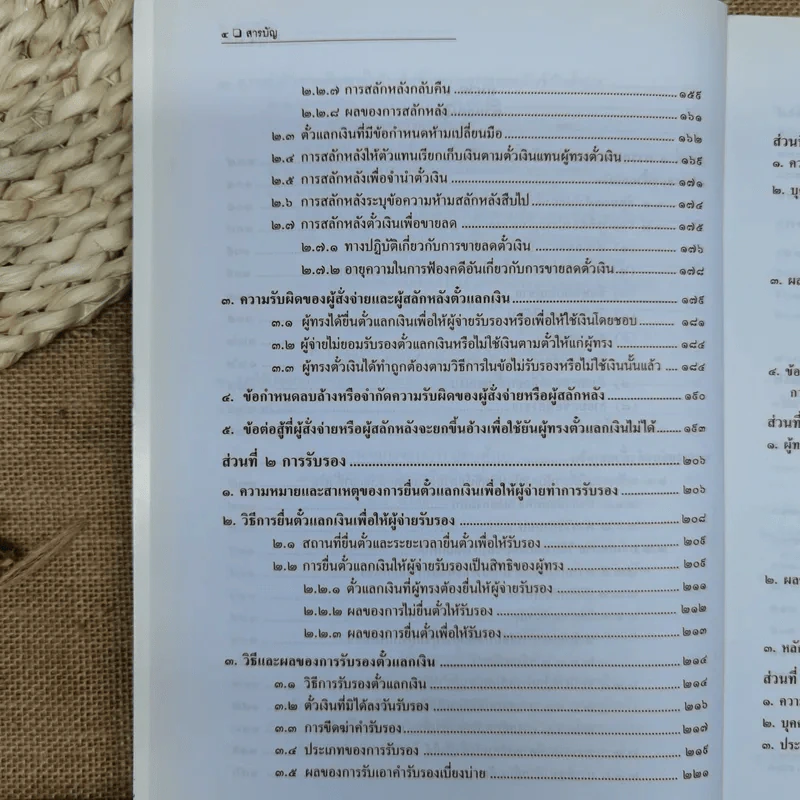 ๔ ❑ สารบัญ
๒.๒.๗ การสลักหลังกลับคืน ๑๕๙
๒.๒.๘ ผลของการสลักหลัง ๑๖๑
๒.๓ ตั๋วแลกเงินที่มีข้อกำหนดห้ามเปลี่ยนมือ ๑๖๒
๒.๔ การสลักหลังให้ตัวแทนเรียกเก็บเงินตามตั๋วเงินแทนผู้ทรงตั๋วเงิน ๑๖๙
๒.๕ การสลักหลังเพื่อจำนำตั๋วเงิน ๑๗๑
๒.๖ การสลักหลังระบุข้อความห้ามสลักหลังสืบไป ๑๗๔
๒.๗ การสลักหลังตั๋วเงินเพื่อขายลด ๑๗๕
๒.๗.๑ ทางปฏิบัติเกี่ยวกับการขายลดตั๋วเงิน ๑๗๖
๒.๗.๒ อายุความในการฟ้องคดีอันเกี่ยวกับการขายลดตั๋วเงิน ๑๗๘
๓. ความรับผิดของผู้สั่งจ่ายและผู้สลักหลังตั๋วแลกเงิน ๑๗๙
๓.๑ ผู้ทรงได้ยื่นตั๋วแลกเงินเพื่อให้ผู้จ่ายรับรองหรือเพื่อให้ใช้เงินโดยชอบ ๑๘๑
๓.๒ ผู้จ่ายไม่ยอมรับรองตั๋วแลกเงินหรือไม่ใช้เงินตามตั๋วให้แก่ผู้ทรง ๑๘๔
๓.๓ ผู้ทรงตั๋วเงินได้ทำถูกต้องตามวิธีการในข้อไม่รับรองหรือไม่ใช้เงินนั้นแล้ว ๑๘๔
๔. ข้อกำหนดลบล้างหรือจำกัดความรับผิดของผู้สั่งจ่ายหรือผู้สลักหลัง ๑๙๐
๕. ข้อต่อสู้ที่ผู้สั่งจ่ายหรือผู้สลักหลังจะยกขึ้นอ้างเพื่อใช้ยันผู้ทรงตั๋วแลกเงินไม่ได้ ๑๙๓
ส่วนที่ ๒ การรับรอง ๒๐๖
๑. ความหมายและสาเหตุของการยื่นตั๋วแลกเงินเพื่อให้ผู้จ่ายทำการรับรอง ๒๐๖
๒. วิธีการยื่นตั๋วแลกเงินเพื่อให้ผู้จ่ายรับรอง ๒๐๘
๒.๑ สถานที่ยื่นตั๋วและระยะเวลายื่นตั๋วเพื่อให้รับรอง ๒๐๙
๒.๒ การยื่นตั๋วแลกเงินให้ผู้จ่ายรับรองเป็นสิทธิของผู้ทรง ๒๐๙
๒.๒.๑ ตั๋วแลกเงินที่ผู้ทรงต้องยื่นให้ผู้จ่ายรับรอง ๒๑๑
๒.๒.๒ ผลของการไม่ยื่นตั๋วให้รับรอง ๒๑๒
๒.๒.๓ ผลของการยื่นตั๋วเพื่อให้รับรอง ๒๑๓
๓. วิธีและผลของการรับรองตั๋วแลกเงิน ๒๑๔
๓.๑ วิธีการรับรองตั๋วแลกเงิน ๒๑๔
๓.๒ ตั๋วเงินที่มิได้ลงวันรับรอง ๒๑๖
๓.๓ การขีดฆ่าคำรับรอง ๒๑๗
๓.๔ ประเภทของการรับรอง ๒๑๙
๓.๕ ผลของการรับเอาคำรับรองเบี่ยงบ่าย ๒๒๑
ส่วนที่
๑.
๒.
๓. ผล
๔. ข้อ
ส่วนที่
๑. ผู้ท
๒. ผล
๓.
ส่วนที่
๑. ความ
๒. บุค
๓. ประ